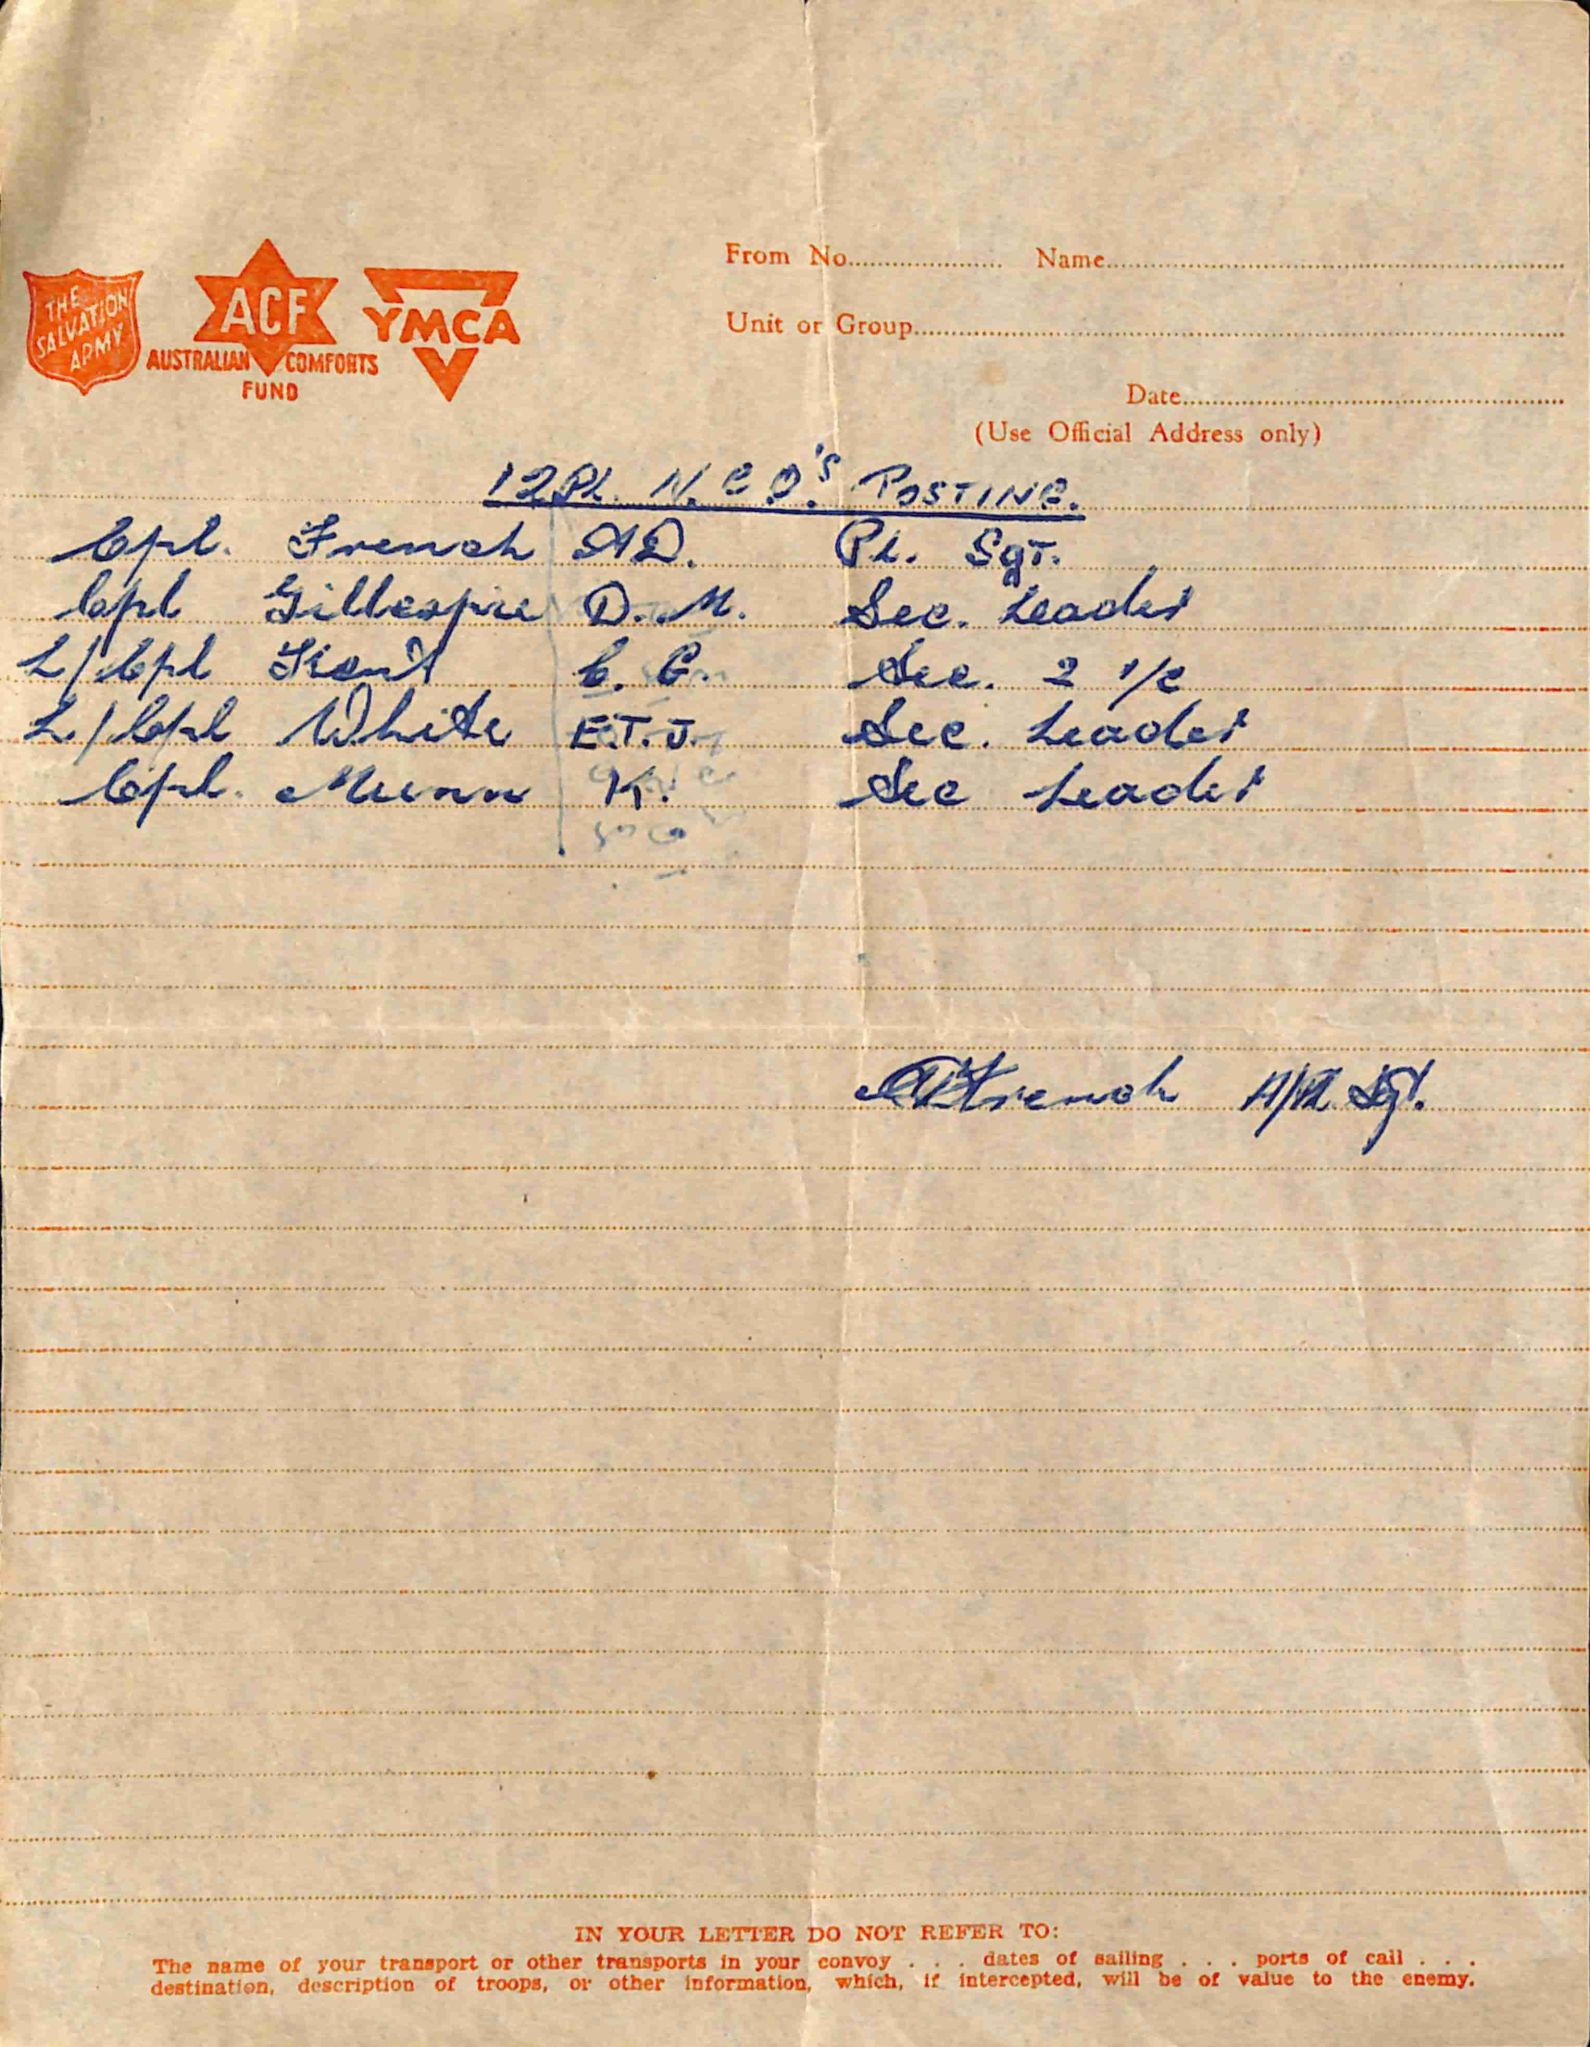 THE SALVATION ARMY
ACF
AUSTRALIAN COMFORTS FUND
YMCA
From No. Name
Unit or Group
Date
(Use Official Address only)
12 Pl. N.C.O.'s POSTING.
Cpl. French A D. Pl. Sgt.
Cpl Gillespie D. M. Sec. Leader
L/Cpl Kent C. G. Sec. 2 i/c
L/Cpl White E.T.J. Sec. Leader
Cpl. Munn K. Sec Leader
French A/Pl. Sgt.
IN YOUR LETTER DO NOT REFER TO:
The name of your transport or other transports in your convoy . . . dates of sailing . . . ports of call . . .
destination, description of troops, or other information, which, if intercepted, will be of value to the enemy.